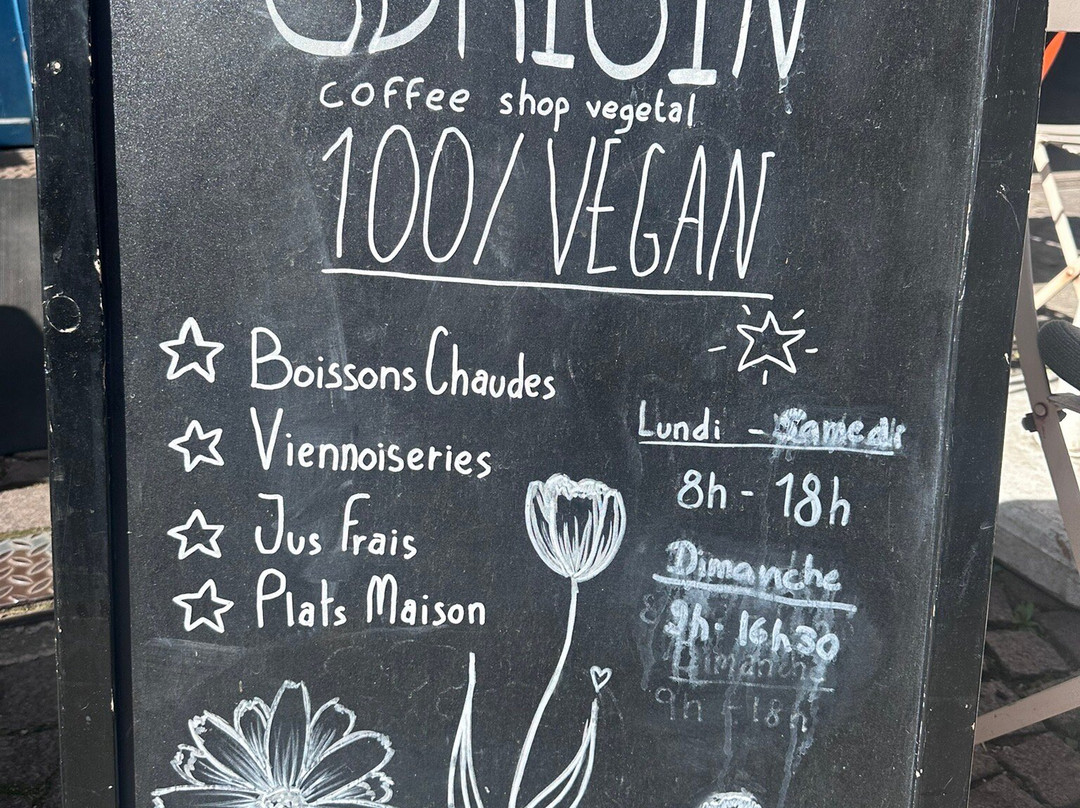 coffee shop vegetal
100/ VEGAN
Boissons Chaudes
Viennoiseries
Jus Frais
Plats Maison
Lundi - Samedi
8h - 18h
Dimanche
9h - 16h30
Dimanche
9h - 18h